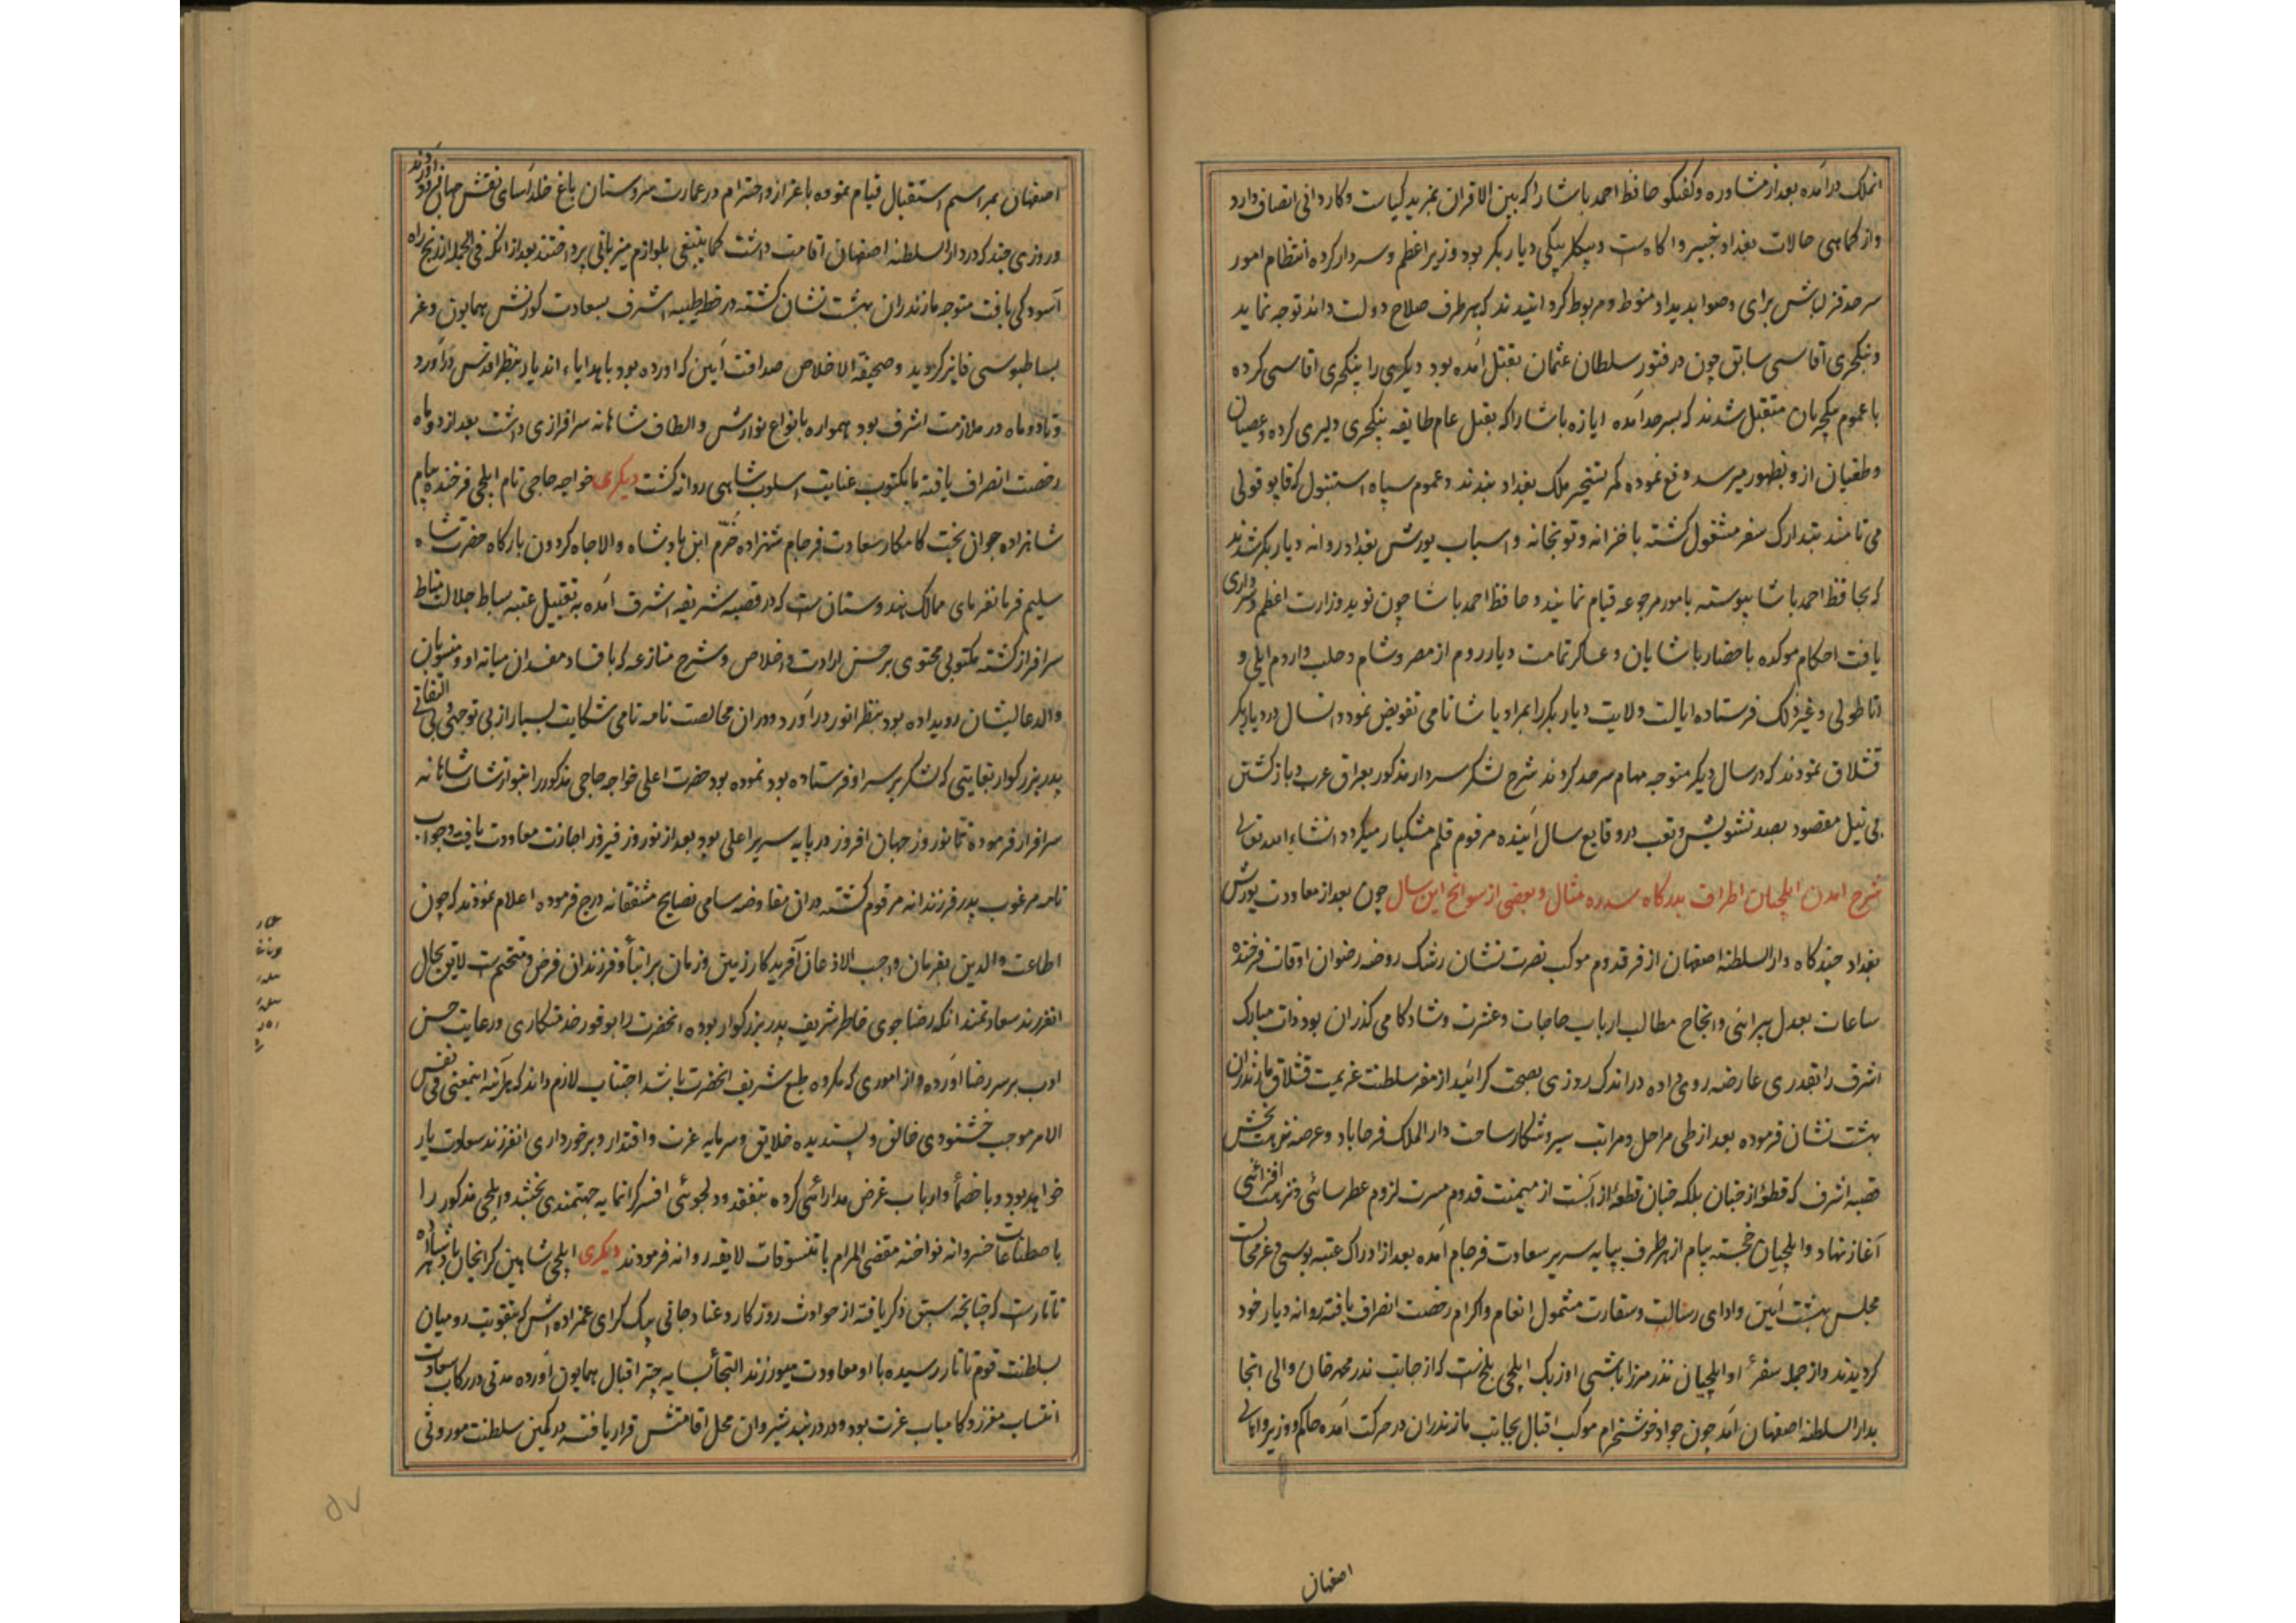 انملک درآمده بعد از مشاوره و گفتگو حافظ احمد پاشا را که بین الاقران بمزید کیاست و کاردانی اتصاف دارد
و از کماهی حالات بغداد خبیر و آگاهست و بیکلربیکی دیاربکر بود وزیر اعظم و سردار کرده انتظام امور
سرحد قزلباش برای و صوابدید او منوط و مربوط گردانیدند که بهر طرف صلاح دولت داند توجه نماید
و ینکچری آقاسی سابق چون در فتور سلطان عثمان بقتل آمده بود دیکری را ینکچری اقاسی کرده
با عموم ینکچریان متقبل شدند که بسرحد آمده ابازه پاشا را که بقتل عام طایفه ینکچری دلیری کرده و عصیان
و طغیان از و بظهور میرسد دفع نموده کمر تسخیر ملک بغداد بندند و عموم سپاه استنبول که قاپو قولی
می نامند بتدارک سفر مشغول کشته با خزانه و توپخانه و اسباب یورش بغداد روانه دیاربکر شدند
که بحافظ احمد پاشا پیوسته بامور مرجوعه قیام نمایند و حافظ احمد پاشا چون نوید وزارت اعظم و سرداری
یافت احکام موکده باحضار پاشایان و عساکر تمامت دیار روم از مصر و شام و حلب و اروم ایلی و
اناطولی و غیر ذلک فرستاده ایالت ولایت دیاربکر را بمراد پاشا نامی تفویض نمود و انسال در دیاربکر
قشلاق نمودند که در سال دیکر متوجه مهام سرحد کردند شرح لشکر سردار مذکور بعراق عرب و بازکشتن
بی نیل مقصود بصد تشویش و تعب در وقایع سال آینده مرقوم قلم مشکبار میکردد انشاء الله تعالی
شرح امدن ایلچیان اطراف بدرکاه سدره مثال و بعضی از سوانح این سال چون بعد از معاودت یورش
بغداد چند کاه دارالسلطنه اصفهان از فر قدوم موکب نصرت نشان رشک روضه رضوان اوقات فرخنده
ساعات بعدل پیرائی و انجاح مطالب ارباب حاجات و عشرت و شادکامی کذران بود ذات مبارک
اشرف را بقدری عارضه روی داده در اندک روزی بصحت کرائید از مقر سلطنت عزیمت قشلاق مازندران
بهشت نشان فرموده بعد از طی مراحل و مراتب سیر و شکار ساحت دار الملک فرحاباد و عرصه نزهت بخش
قصبه اشرف که قطعهٔ از جنان بلکه جنان قطعهٔ از آنست از میمنت قدوم مسرت لزوم عطرسائی و نزهت افزائی
آغاز نهاد و ایلچیان خجسته پیام از هر طرف بپایه سریر سعادت فرجام آمده بعد از ادراک عتبه بوسی و عز محاب
مجلس بهشت آیین و ادای رسالت و سفارت مشمول انعام و اکرام رخصت انصراف یافته روانه دیار خود
کردیدند و از جمله سفرٱ و ایلچیان نذر میرزا باشی اوزبک ایلچی بلخ است که از جانب ندر محمد خان والی انجا
بدار السلطنه اصفهان آمد چون جواد خوشخرام موکب اقبال بجانب مازندران در حرکت آمده حاکم و وزیر و اهالی
اصفهان
اصفهان بمراسم استقبال قیام نموده باعزاز و احترام در عمارت سروستان باغ خلد آسای نقش جهان فرود آوردند
و روزی چند که در دار السلطنه اصفهان اقامت داشت کما ینبغی بلوازم میزبانی پرداختند بعد از انکه فی الجمله از رنج راه
آسودکی یافت متوجه مازندران بهشت نشان کشته در خطه طیبه اشرف بسعادت کورنش همایون و عز
بساطبوسی فایز کردید و صحیفة الاخلاص صداقت آیین که آورده بود با هدایاء اندیار بنظر اقدس درآورد
و تا دو ماه در ملازمت اشرف بود همواره بانواع نوازش و الطاف شاهانه سرافرازی داشت بعد از دو ماه
رخصت انصراف یافته با مکتوب عنایت اسلوب شاهی روانه کشت دیکری خواجه حاجی نام ایلچی فرخنده پیام
شاهزاده جوان بخت کامکار سعادت فرجام شهزاده خرّم ابن پادشاه والاجاه کردون بارکاه حضرت شاه
سلیم فرمانفرمای ممالک هندوستان است که در قصبه شریفه اشرف آمده به تقبیل عتبه بساط جلالت مناط
سرافراز کشته مکتوبی محتوی بر حسن ارادت و اخلاص و شرح منازعه که بافساد مفسدان میانه او و منسوبان
والد عالیشان رویداده بود بنظر انور درآورد و در ان مخالصت نامه نامی شکایت بسیار از بی توجهی و بی التفاتی
پدر بزرکوار بغایتی که لشکر بر سر او فرستاده بود نموده بود حضرت اعلی خواجه حاجی مذکور را بنوازشات شاهانه
سرافراز فرموده تا نوروز جهان افروز در پایه سریر اعلی بود بعد از نوروز فیروز اجازت معاودت یافت و جواب
نامه مرغوب پدر فرزندانه مرقوم کشته در ان مفاوضه سامی نصایح مشفقانه درج فرموده اعلام نمودند که چون
اطاعت والدین بفرمان واجب الاذعان آفریدکار زمین و زمان بر ابنأ و فرزندان فرض و متحتم است لایق بحال
انفرزند سعادتمند آنکه رضا جوی خاطر شریف پدر بزرکوار بوده انحضرت را بوفور خدمتکاری و رعایت حسن
ادب بر سر رضا آورده و از اموری که مکروه طبع شریف انحضرت باشد اجتناب لازم داند که هرآئنه اینمعنی فی نفس
الامر موجب خشنودی خالق و پسندیده خلایق و سرمایه عزت و اقتدار و برخورداری انفرزند سعادت یار
خواهد بود و با خصمأ و ارباب غرض مدارائی کرده بتفقد و دلجوئی افسر کرانمایه جهتمندی بخشد و ایلچی مذکور را
باصطناعات خسروانه نواخته مقضی المرام با تنسوقات لایقه روانه فرمودند دیکری ایلچی شاهین کرای خان پادشاه
تاتار است که چنانچه سبق ذکر یافته از حوادث روزکار و عناد جانی بیک کرای عمزاده اش که بتقویت رومیان
بسلطنت قوم تاتار رسیده با او معاودت میورزند التجأ بسایه چتر اقبال همایون آورده مدتی در رکاب سعادت
انتساب معزز و کامیاب عزت بود و در دربند شیروان محل اقامتش قرار یافته در کمین سلطنت موروثی
۵۷